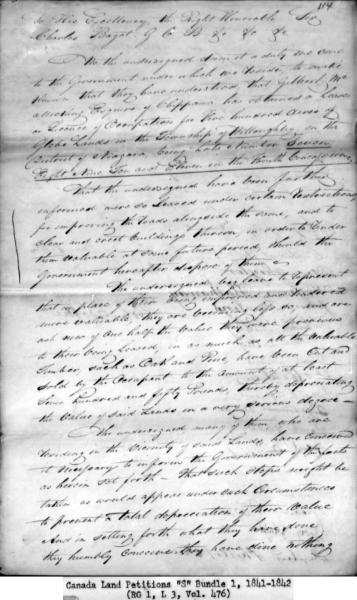 114
To His Excellency, the Right Honorable Sir
Charles Bagot G C B &c &c &c
We the undersigned deem it a duty we owe
to the Government under which we reside to make
known that they have understood that Gilbert Mc
Esquire of Chippawa has obtained a Lease
or License of Occupation for Five hundred Acres
Globe Lands in the Township of Willoughby in the
District of Niagara being Lots Number Seven
Eight Nine Ten and Eleven in the Concession
That the undersigned have been further
informed were so Leased under certain Restrictions
for improving the Roads alongside the same, and to
clear and erect buildings thereon, in order to render
them valuable at some future period, should the
Government hereafter dispose of them
The undersigned beg leave to represent
that in place of their being improved and rendered
more valuable, they are becoming less so, and are
not now of one half the Value they were previous
to their being Leased, in as much as all the valuable
Timber, such as Oak and Pine, have been Cut and
Sold by the Occupant to the amount of at least
hundred and fifty Pounds, thereby depreciating
the Value of said Lands in a very serious degree
The undersigned many of them, who are
residing in the Vicinity of said Lands, have conceived
it necessary to inform the Government of the facts
as herein set forth - that such steps might be
taken as would appear under such Circumstances
to prevent a total depreciation of their value
And in setting forth what they have done
they humbly conceive they have done nothing
Canada Land Petitions "S" Bundle 1, 1841-1842
(RG 1, L 3, Vol. 476)